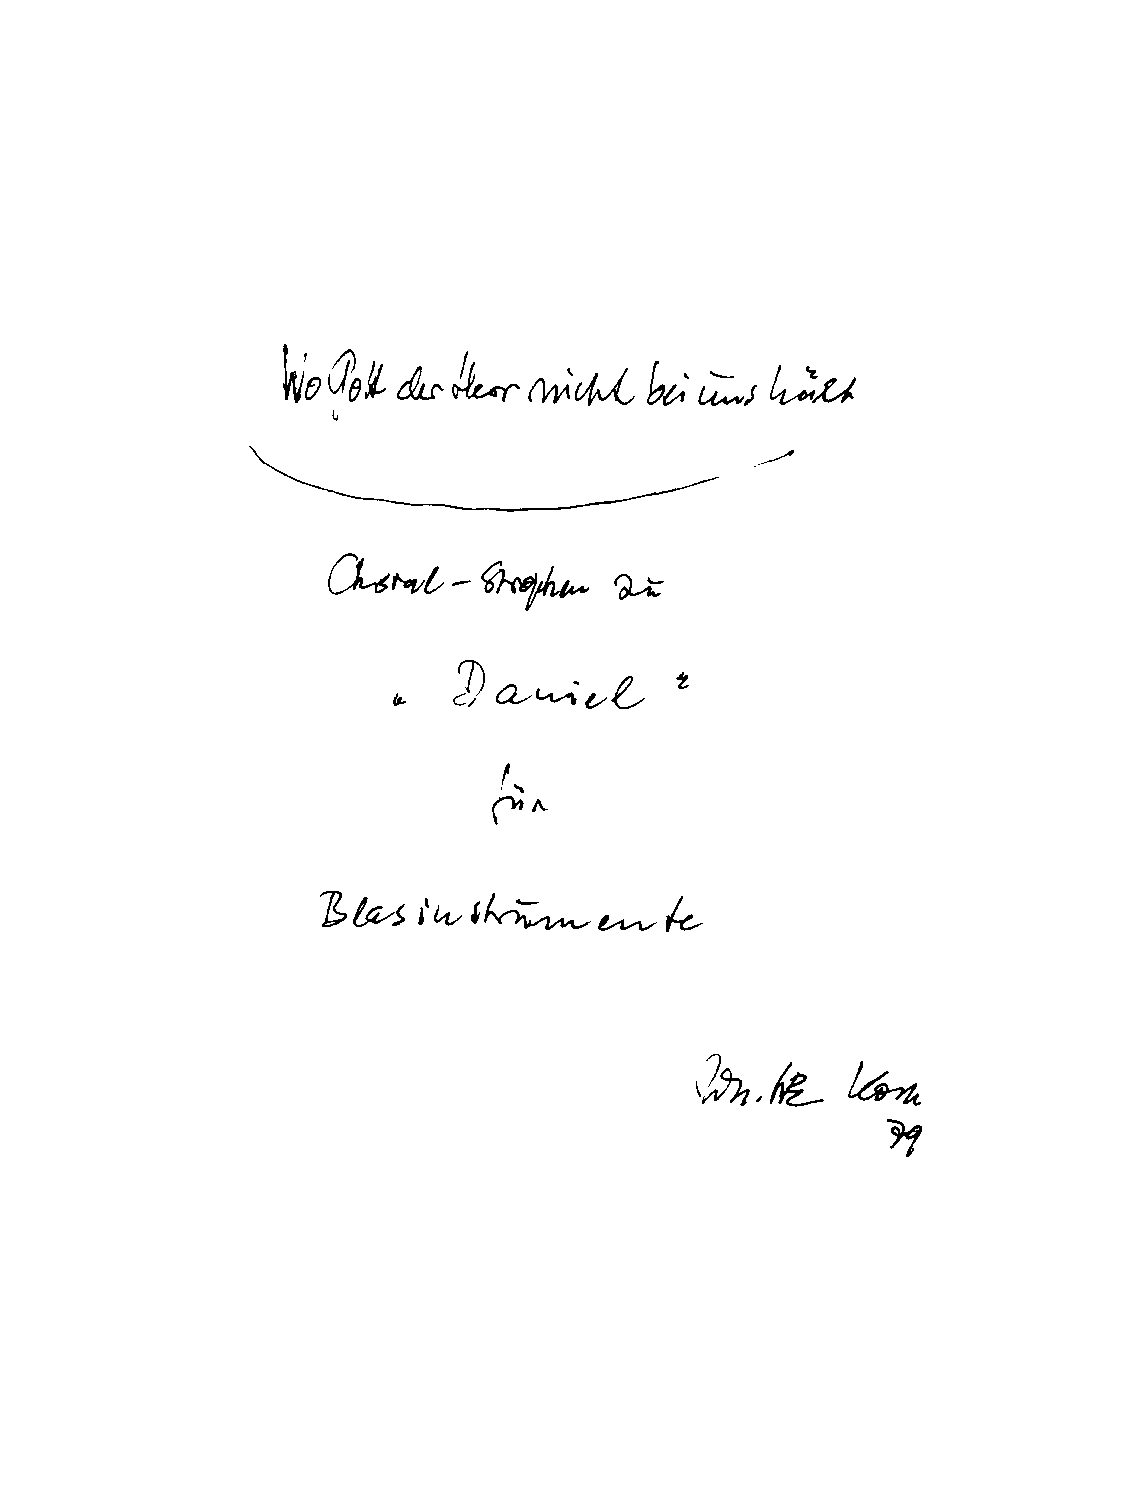 Wo Gott der Herr nicht bei uns hält
Choral-Strophen zu
„Daniel“
für
Blasinstrumente
Joh. H. E. Koch
79